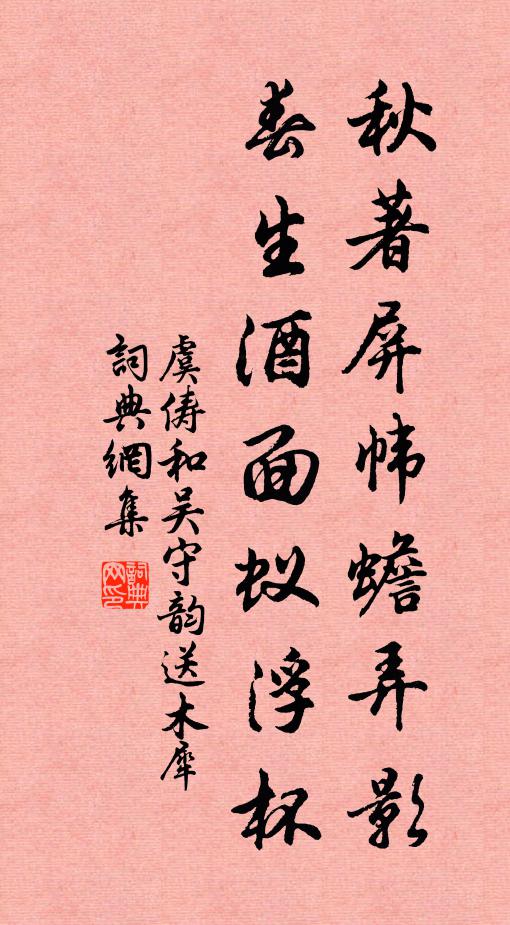 秋著屏幃蟾弄影
春生酒面蚁浮杯
虞俦和吴守韵送木犀
詞典網集
詞典网印